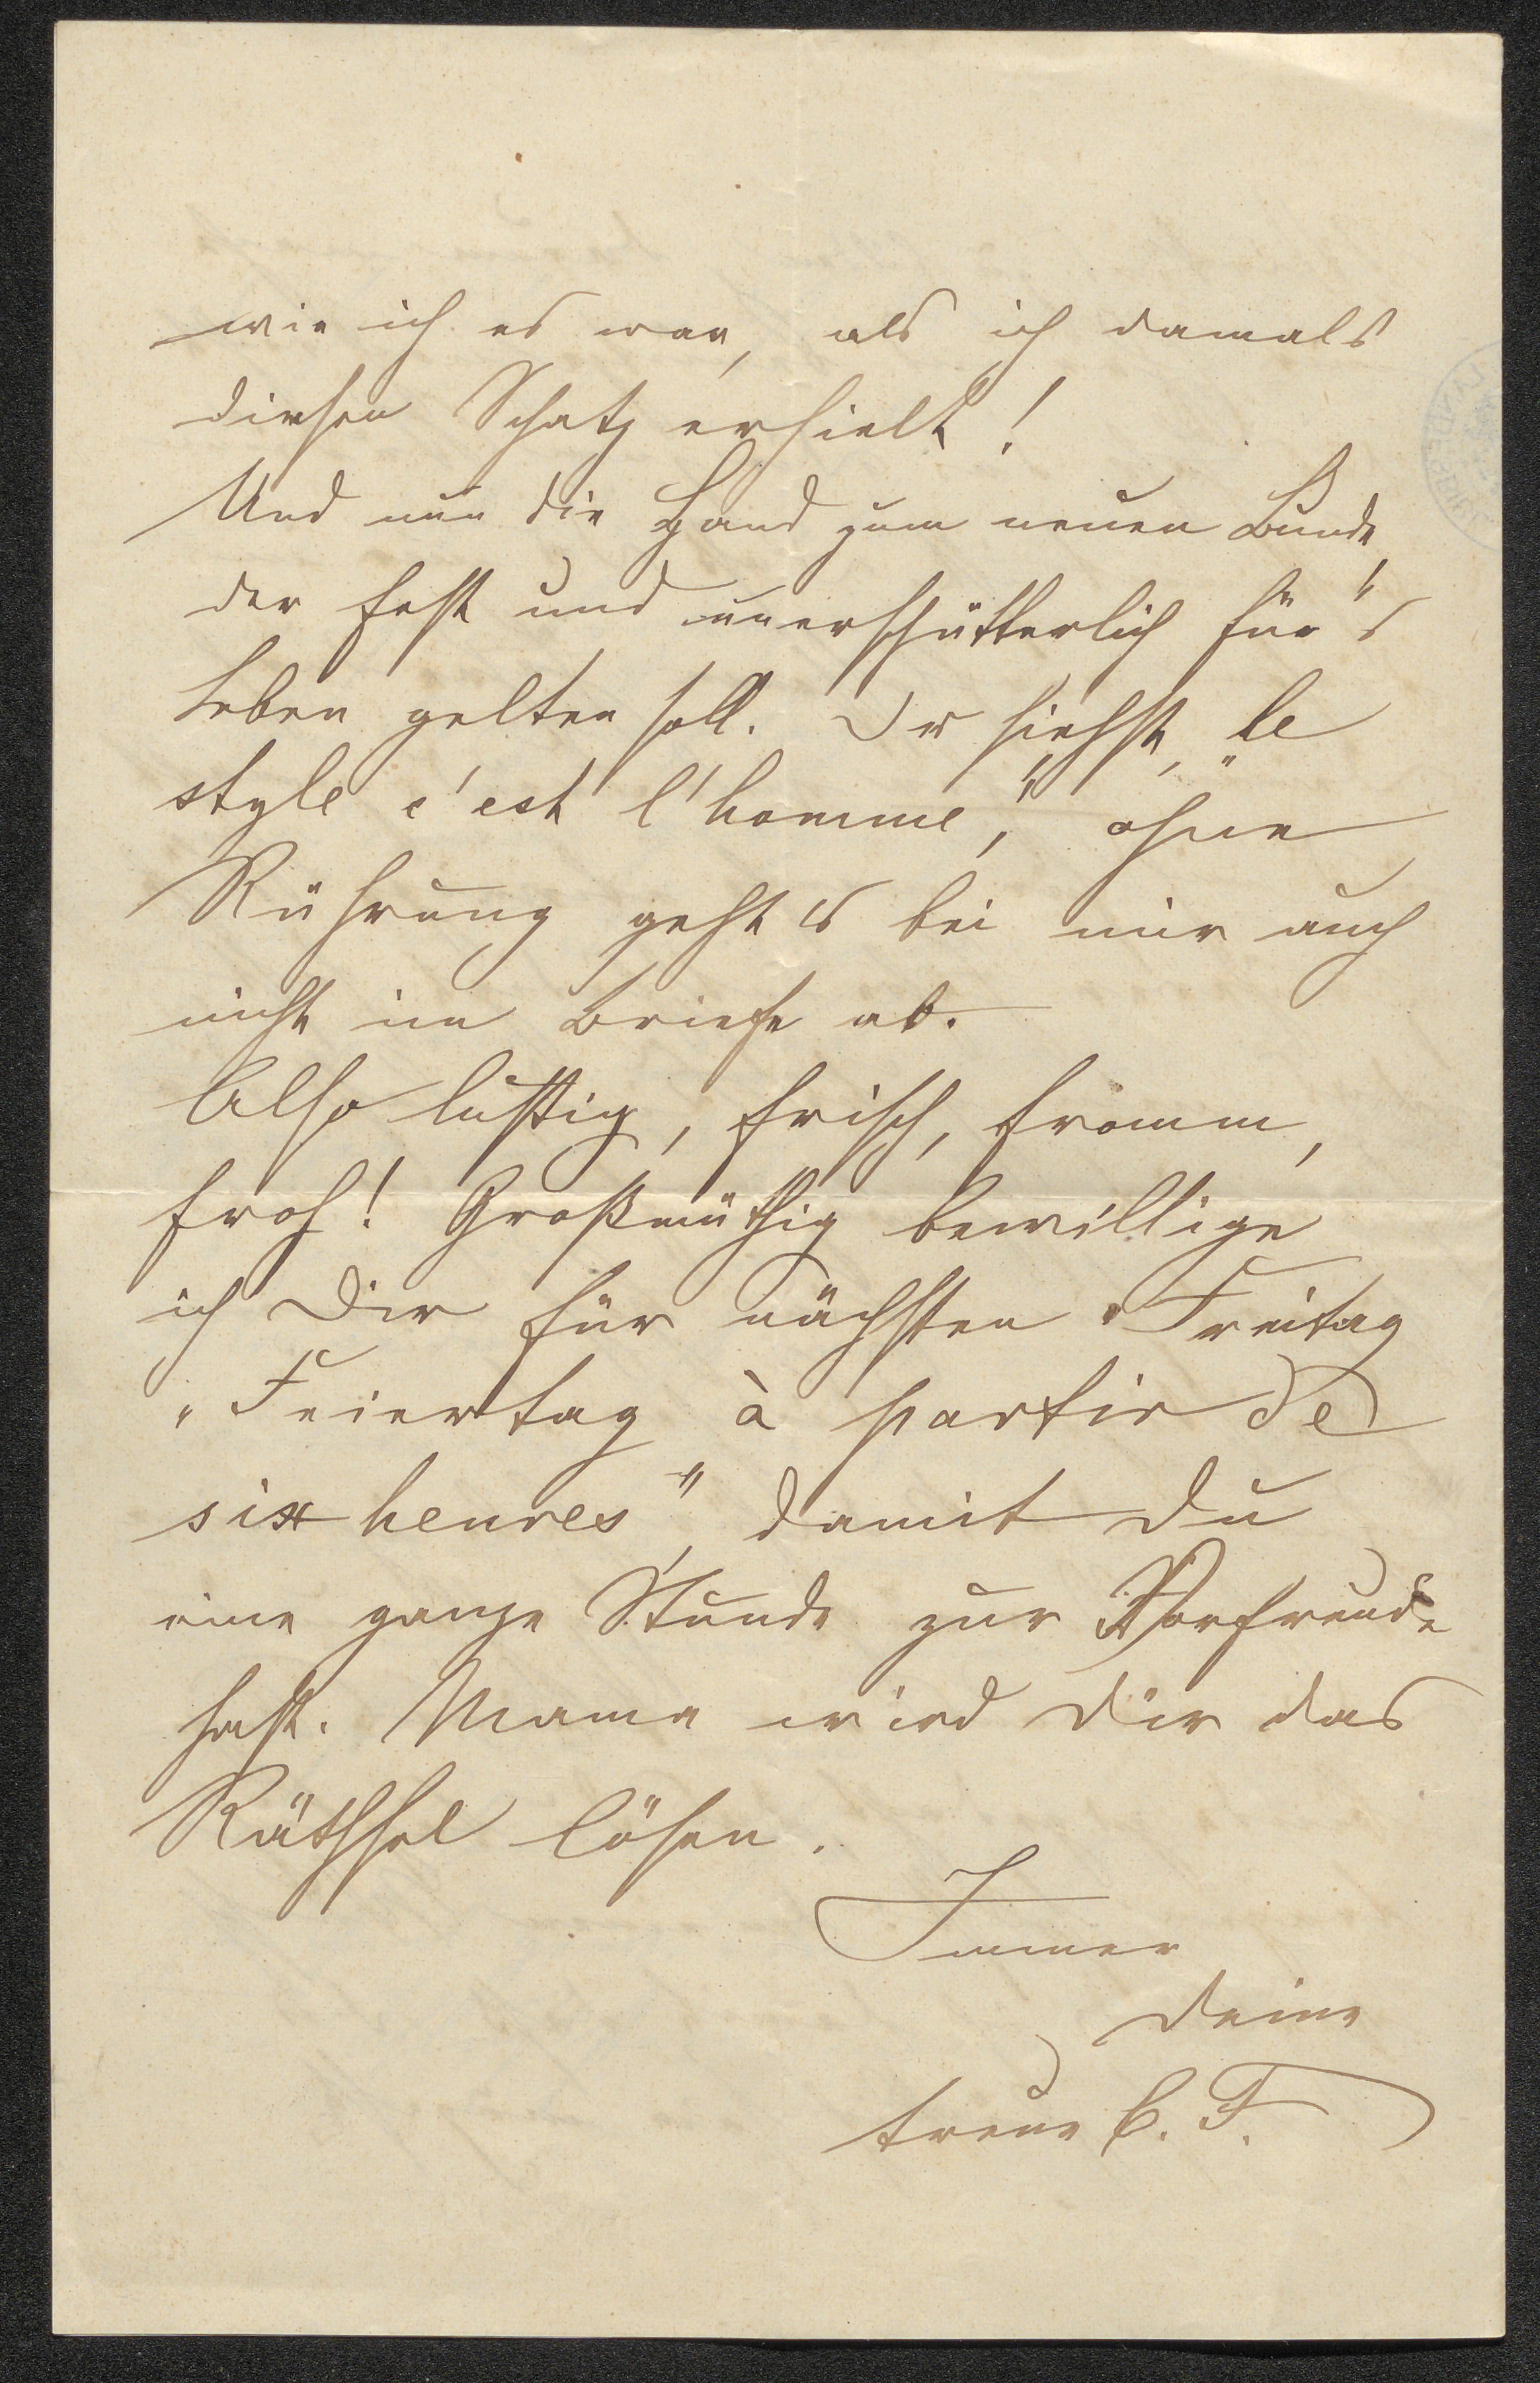 wie ich es war, als ich damals
diesen Schatz erhielt!
Und nun die Hand zum neuen Bunde,
der fest und unerschütterlich für's
Leben gelten soll. Du siehst, „le
style c'est l'homme", ohne
Rührung geht es bei mir auch
nicht im Briefe ab.
Also lustig, frisch, fromm,
froh! Großmüthig bewillige
ich Dir für nächsten Freitag
„Feiertag à partir de
six heures", damit Du
eine ganze Stunde zur Vorfreude
hast. Mama wird Dir das
Räthsel lösen.
Immer
Deine
treue C. F.